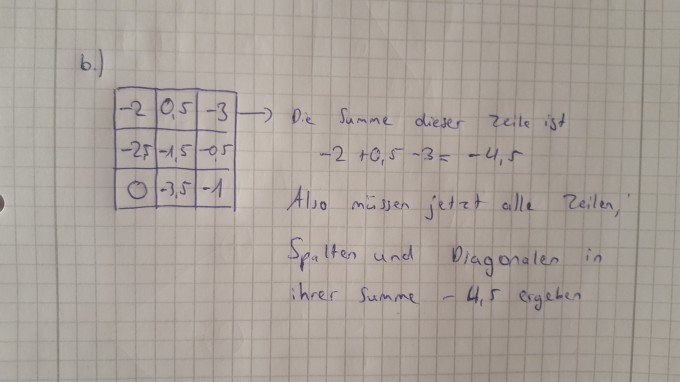 b.)
-2 0,5 -3 → Die Summe dieser Zeile ist
-2,5 -1,5 -0,5 -2 +0,5 -3 = -4,5
0 -3,5 -1 Also müssen jetzt alle Zeilen,
Spalten und Diagonalen in
ihrer Summe - 4,5 ergeben